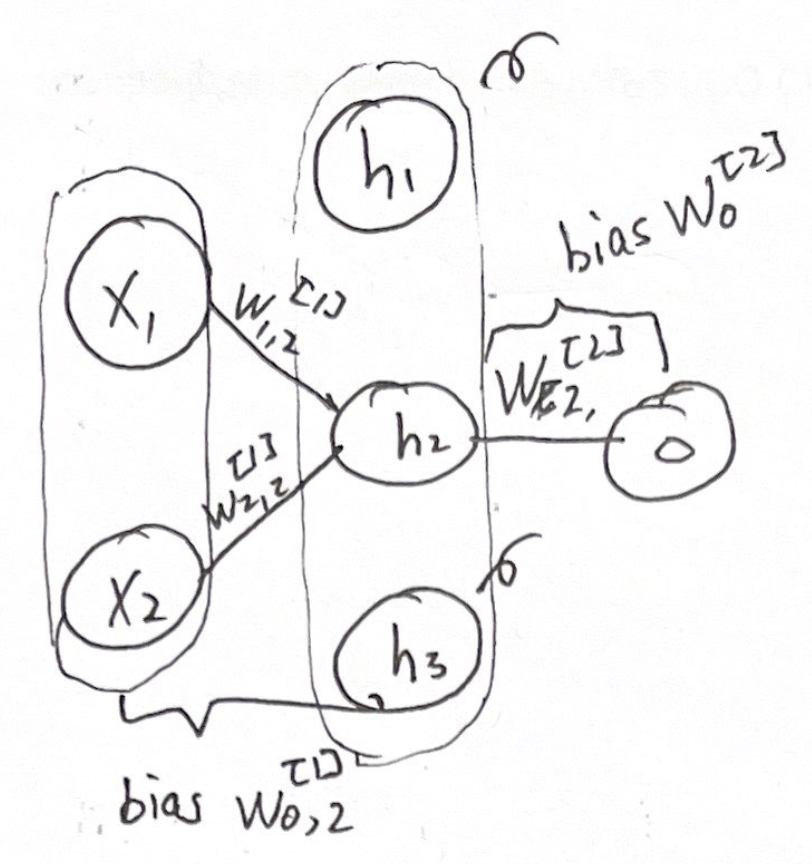 σ
h1
bias W0[2]
X1
W1,2[1]
W2,[2]
h2
o
W2,2[1]
X2
σ
h3
bias W0,2[1]